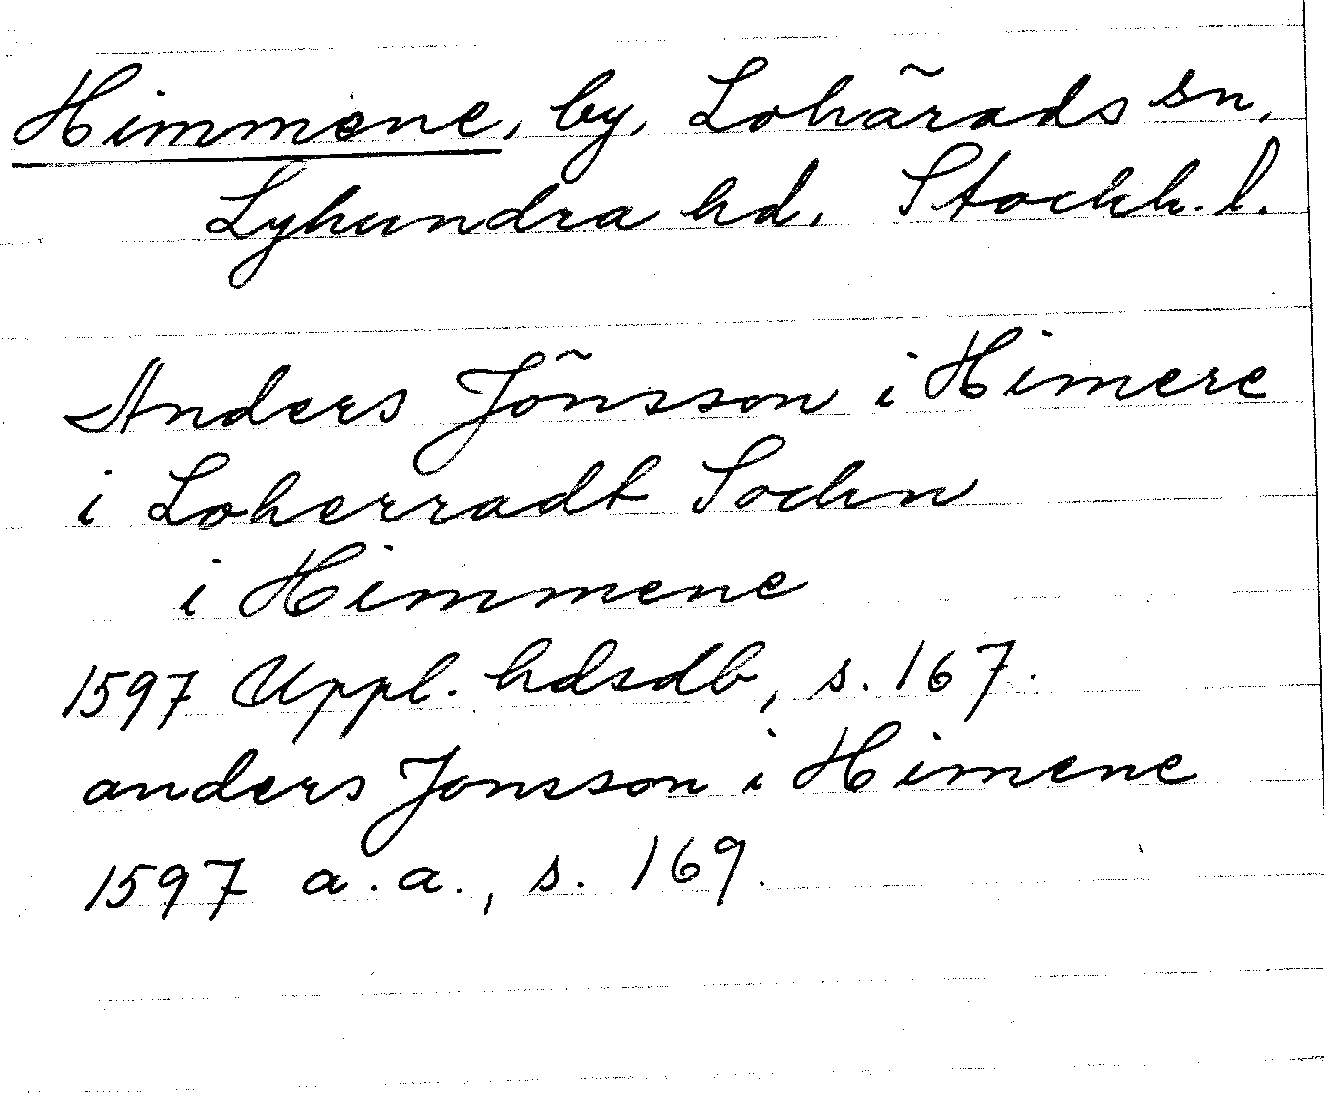 Himmene, by, Lohärads sn,
Lyhundra hd, Stockh. l.
Anders Jönsson i Himere
i Loherradt Sochn
i Himmene
1597 Uppl. hdsdb, s. 167.
anders Jonsson i Himene
1597 a.a., s. 169.